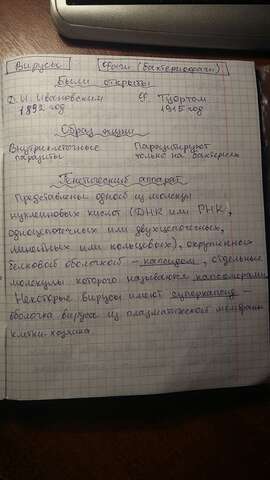 Вирусы Фаги (Бактериофаги)
Были открыты
Д. И. Ивановским Ф. Туортом
1892 год 1915 год
Образ жизни
Внутриклеточные Паразитируют
паразиты только на бактериях
Генетический аппарат
Представлены одной из молекул
нуклеиновых кислот (ДНК или РНК,
одноцепочных или двухцепочных,
линейных или кольцевых), окружённой
белковой оболочкой – капсидом, отдельные
молекулы которого называются капсомерами.
Некоторые вирусы имеют суперкапсид –
оболочка вируса из плазматической мембраны
клетки-хозяина